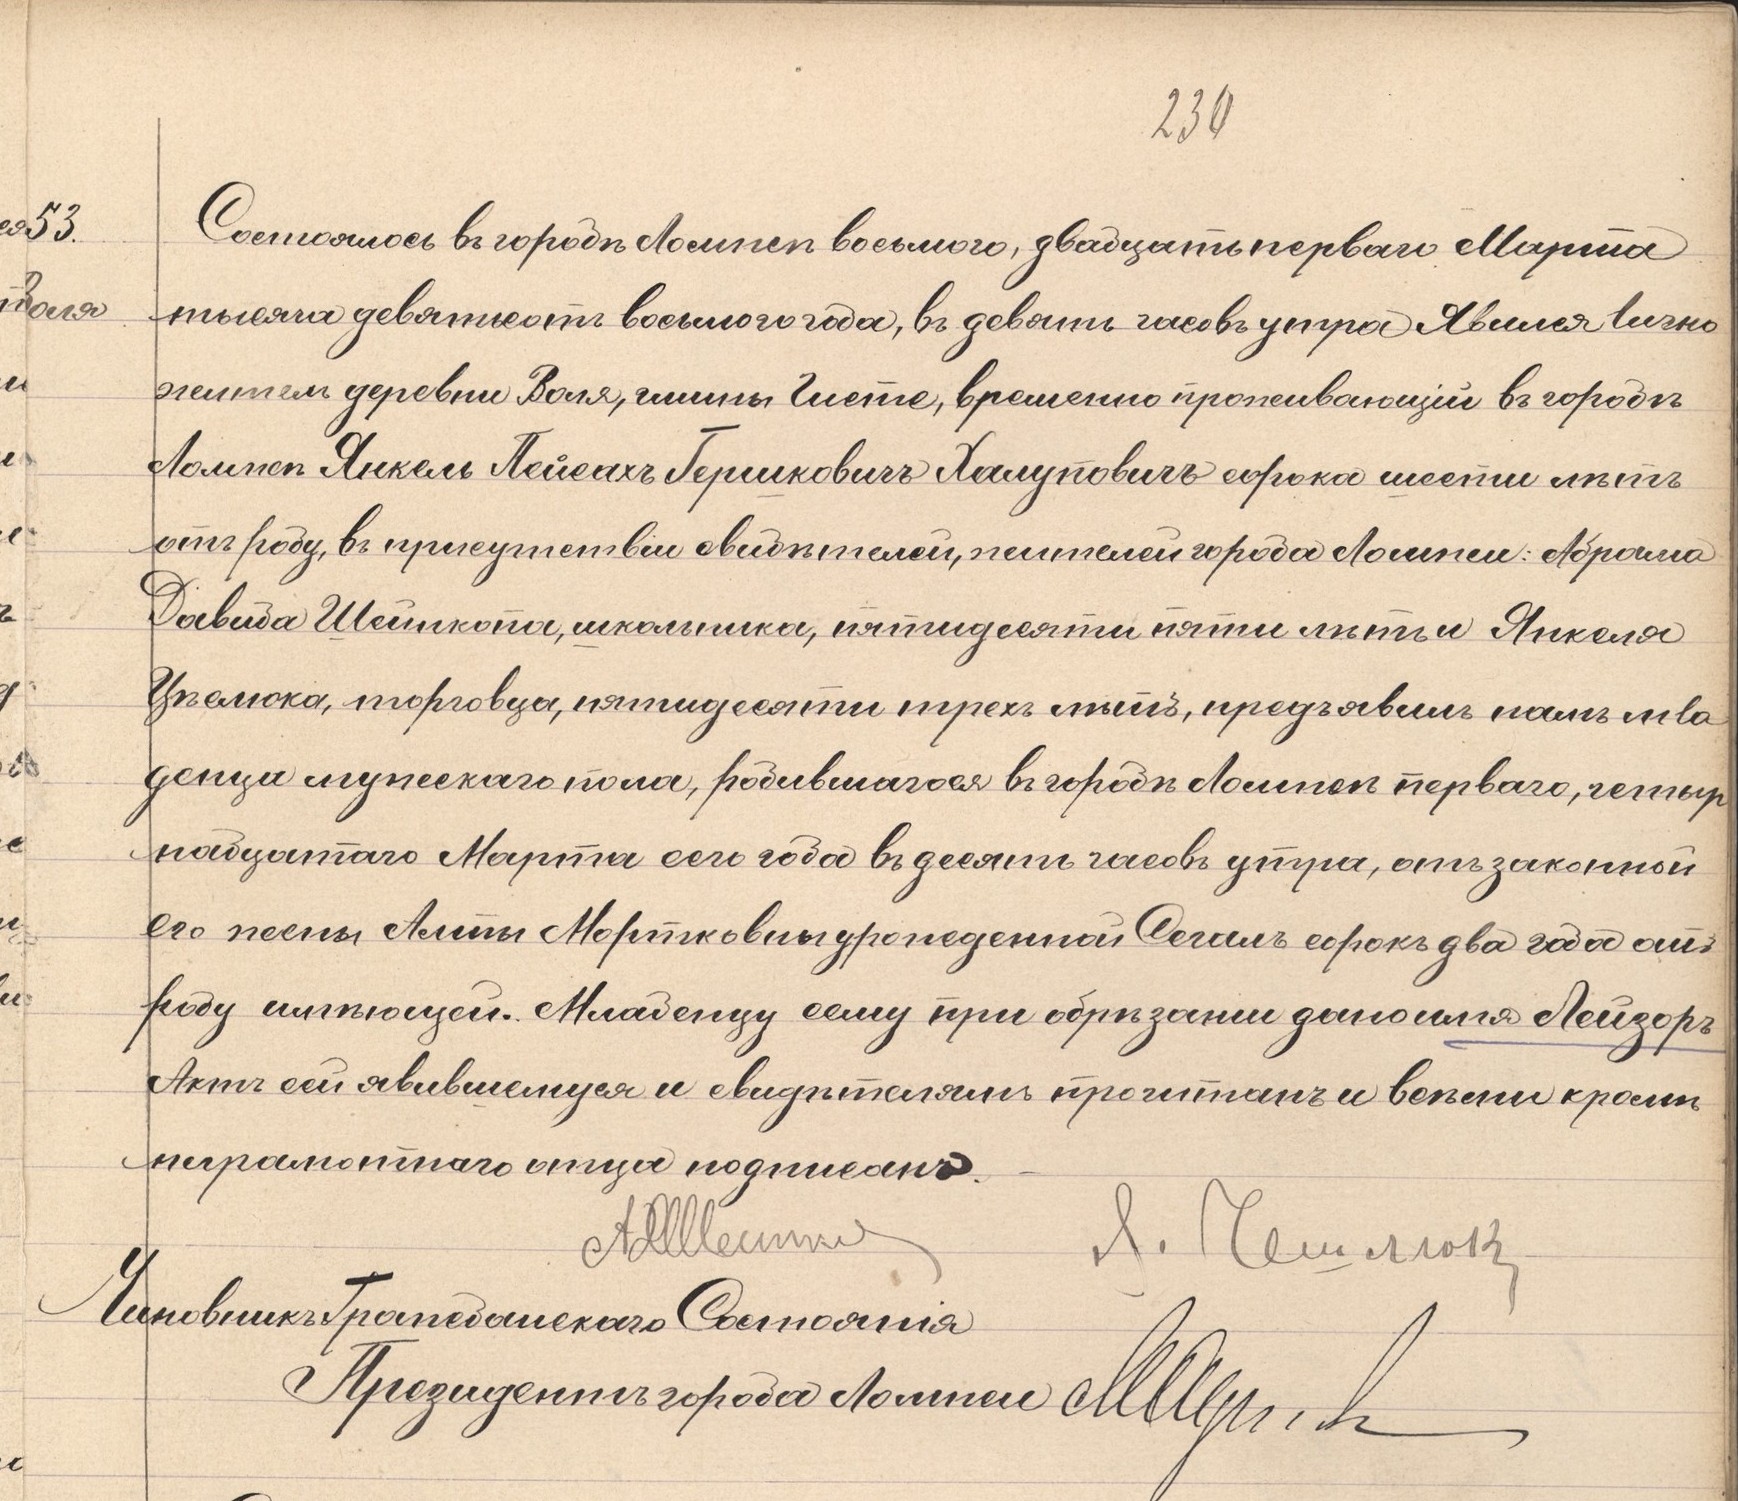 230
53.
Воля
Состоялось въ городѣ Ломжѣ восьмого, двадцать перваго Марта
тысяча девятьсотъ восьмого года, въ девять часовъ утра Явился лично
житель деревни Воля, гмины Чисте, временно проживающій въ городѣ
Ломжѣ Янкель Пейсахъ Гершковичъ Халуповичъ сорока шести лѣтъ
отъ роду, въ присутствіи свидѣтелей, жителей города Ломжи: Абрама
Давида Шейнкопа, школьника, пятидесяти пяти лѣтъ и Янкеля
торговца, пятидесяти трехъ лѣтъ, предъявилъ намъ мла
денца мужескаго пола, родившагося въ городѣ Ломжѣ перваго, четыр
надцатаго Марта сего года въ десять часовъ утра, отъ законной
его жены Алты Мортковны урожденной Сегалъ сорокъ два года отъ
роду имѣющей. Младенцу сему при обрѣзаніи дано имя Лейзоръ
Актъ сей явившемуся и свидѣтелямъ прочитанъ и всѣми кромѣ
неграмотнаго отца подписанъ.
Чиновникъ Гражданскаго Состоянія
Президентъ города Ломжи